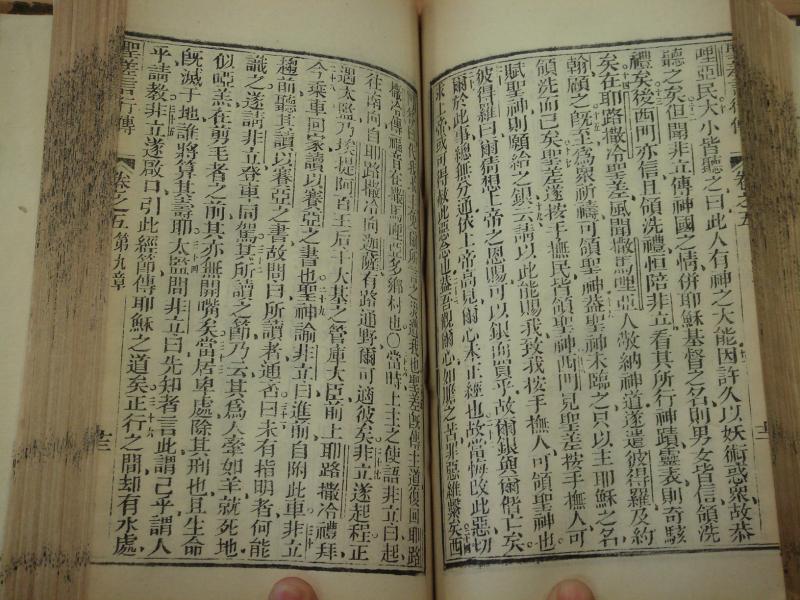 聖差言行傳 卷之五
哩亞民大小皆聽之曰此人有神之大能因許久以妖術惑衆故恭
聽之矣但聞非立傳神國之情併耶穌基督之名則男女皆信領洗
禮矣後西門亦信且領洗禮恒陪非立看其所行神蹟靈表則奇駭
矣在耶路撒冷聖差風聞撒馬哩亞人敬納神道遂遣彼得羅及約
翰顧之既至為衆祈禱可領聖神蓋聖神未臨之只以主耶穌之名
領洗而已矣聖差按手撫民皆領聖神西門見聖差按手撫人可
賦聖神則願給之銀云請以此能賜我致我按手撫人可領聖神也
彼得羅曰爾猜想上帝之恩賜可以銀而買乎故爾銀與爾偕亡矣
爾於此事總無分逼依上帝高見爾心未正經也故當悔改此惡切
求上帝或可得赦此惡念也蓋吾觀爾心如膽之苦罪惡維繫矣西
往南向自耶路撒冷向迦薩有路通野爾可適彼矣非立遂起程正
遇太監乃埃提阿百王后干大基之管庫大臣前上耶路撒冷禮拜
今乘車回家讀以賽亞之書也聖神諭非立曰進前自附此車非立
趨前聽其讀以賽亞之書故問曰所讀者通否曰未有指明者何能
識之遂請非立齊車同駕其所讀之節乃云其為人牽如羊就死地
似啞羔在剪毛者之前其亦無開嘴矣當居卑處除其刑也且生命
既滅于地誰將算其壽耶太監問非立曰先知者言此謂己乎謂人
乎請教非立遂啟口引此經節傳耶穌之道矣正行之間却有水處
聖差言行傳 卷之五第九章